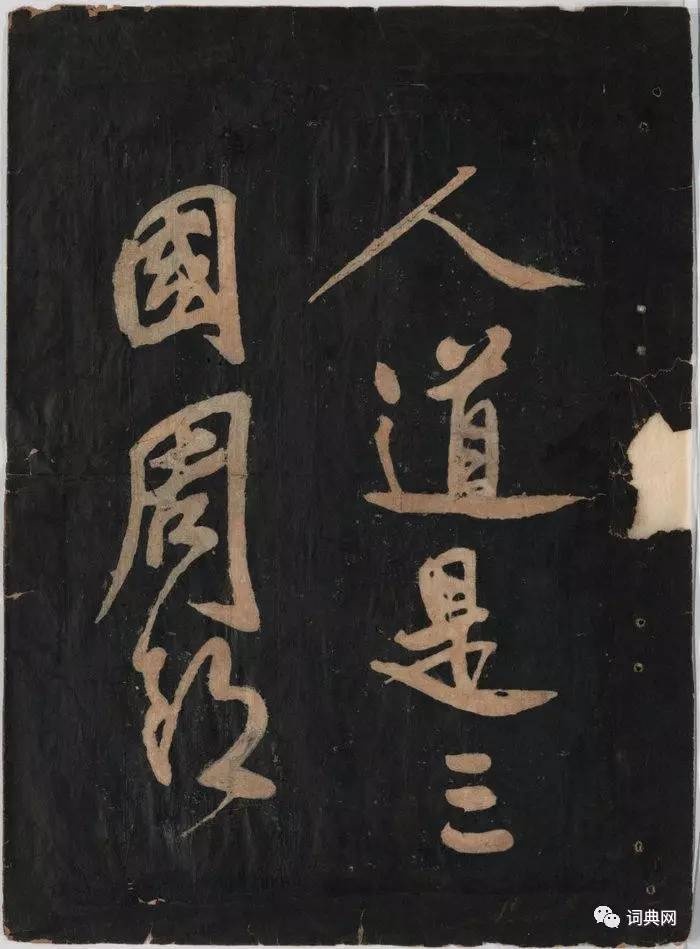 人道是三
國周郎
词典网